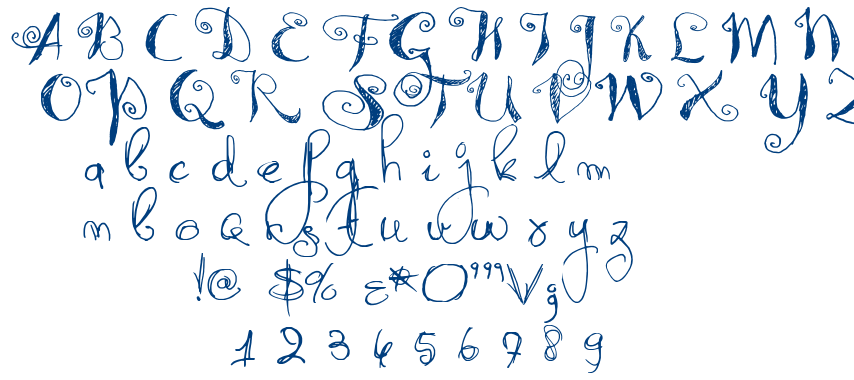 A B C D E F G H I J K L M N
O P Q R S T U V W X Y Z
a b c d e f g h i j k l m
n b o a r s t u v w x y z
!@ $% ε*O999V;
1 2 3 4 5 6 7 8 9